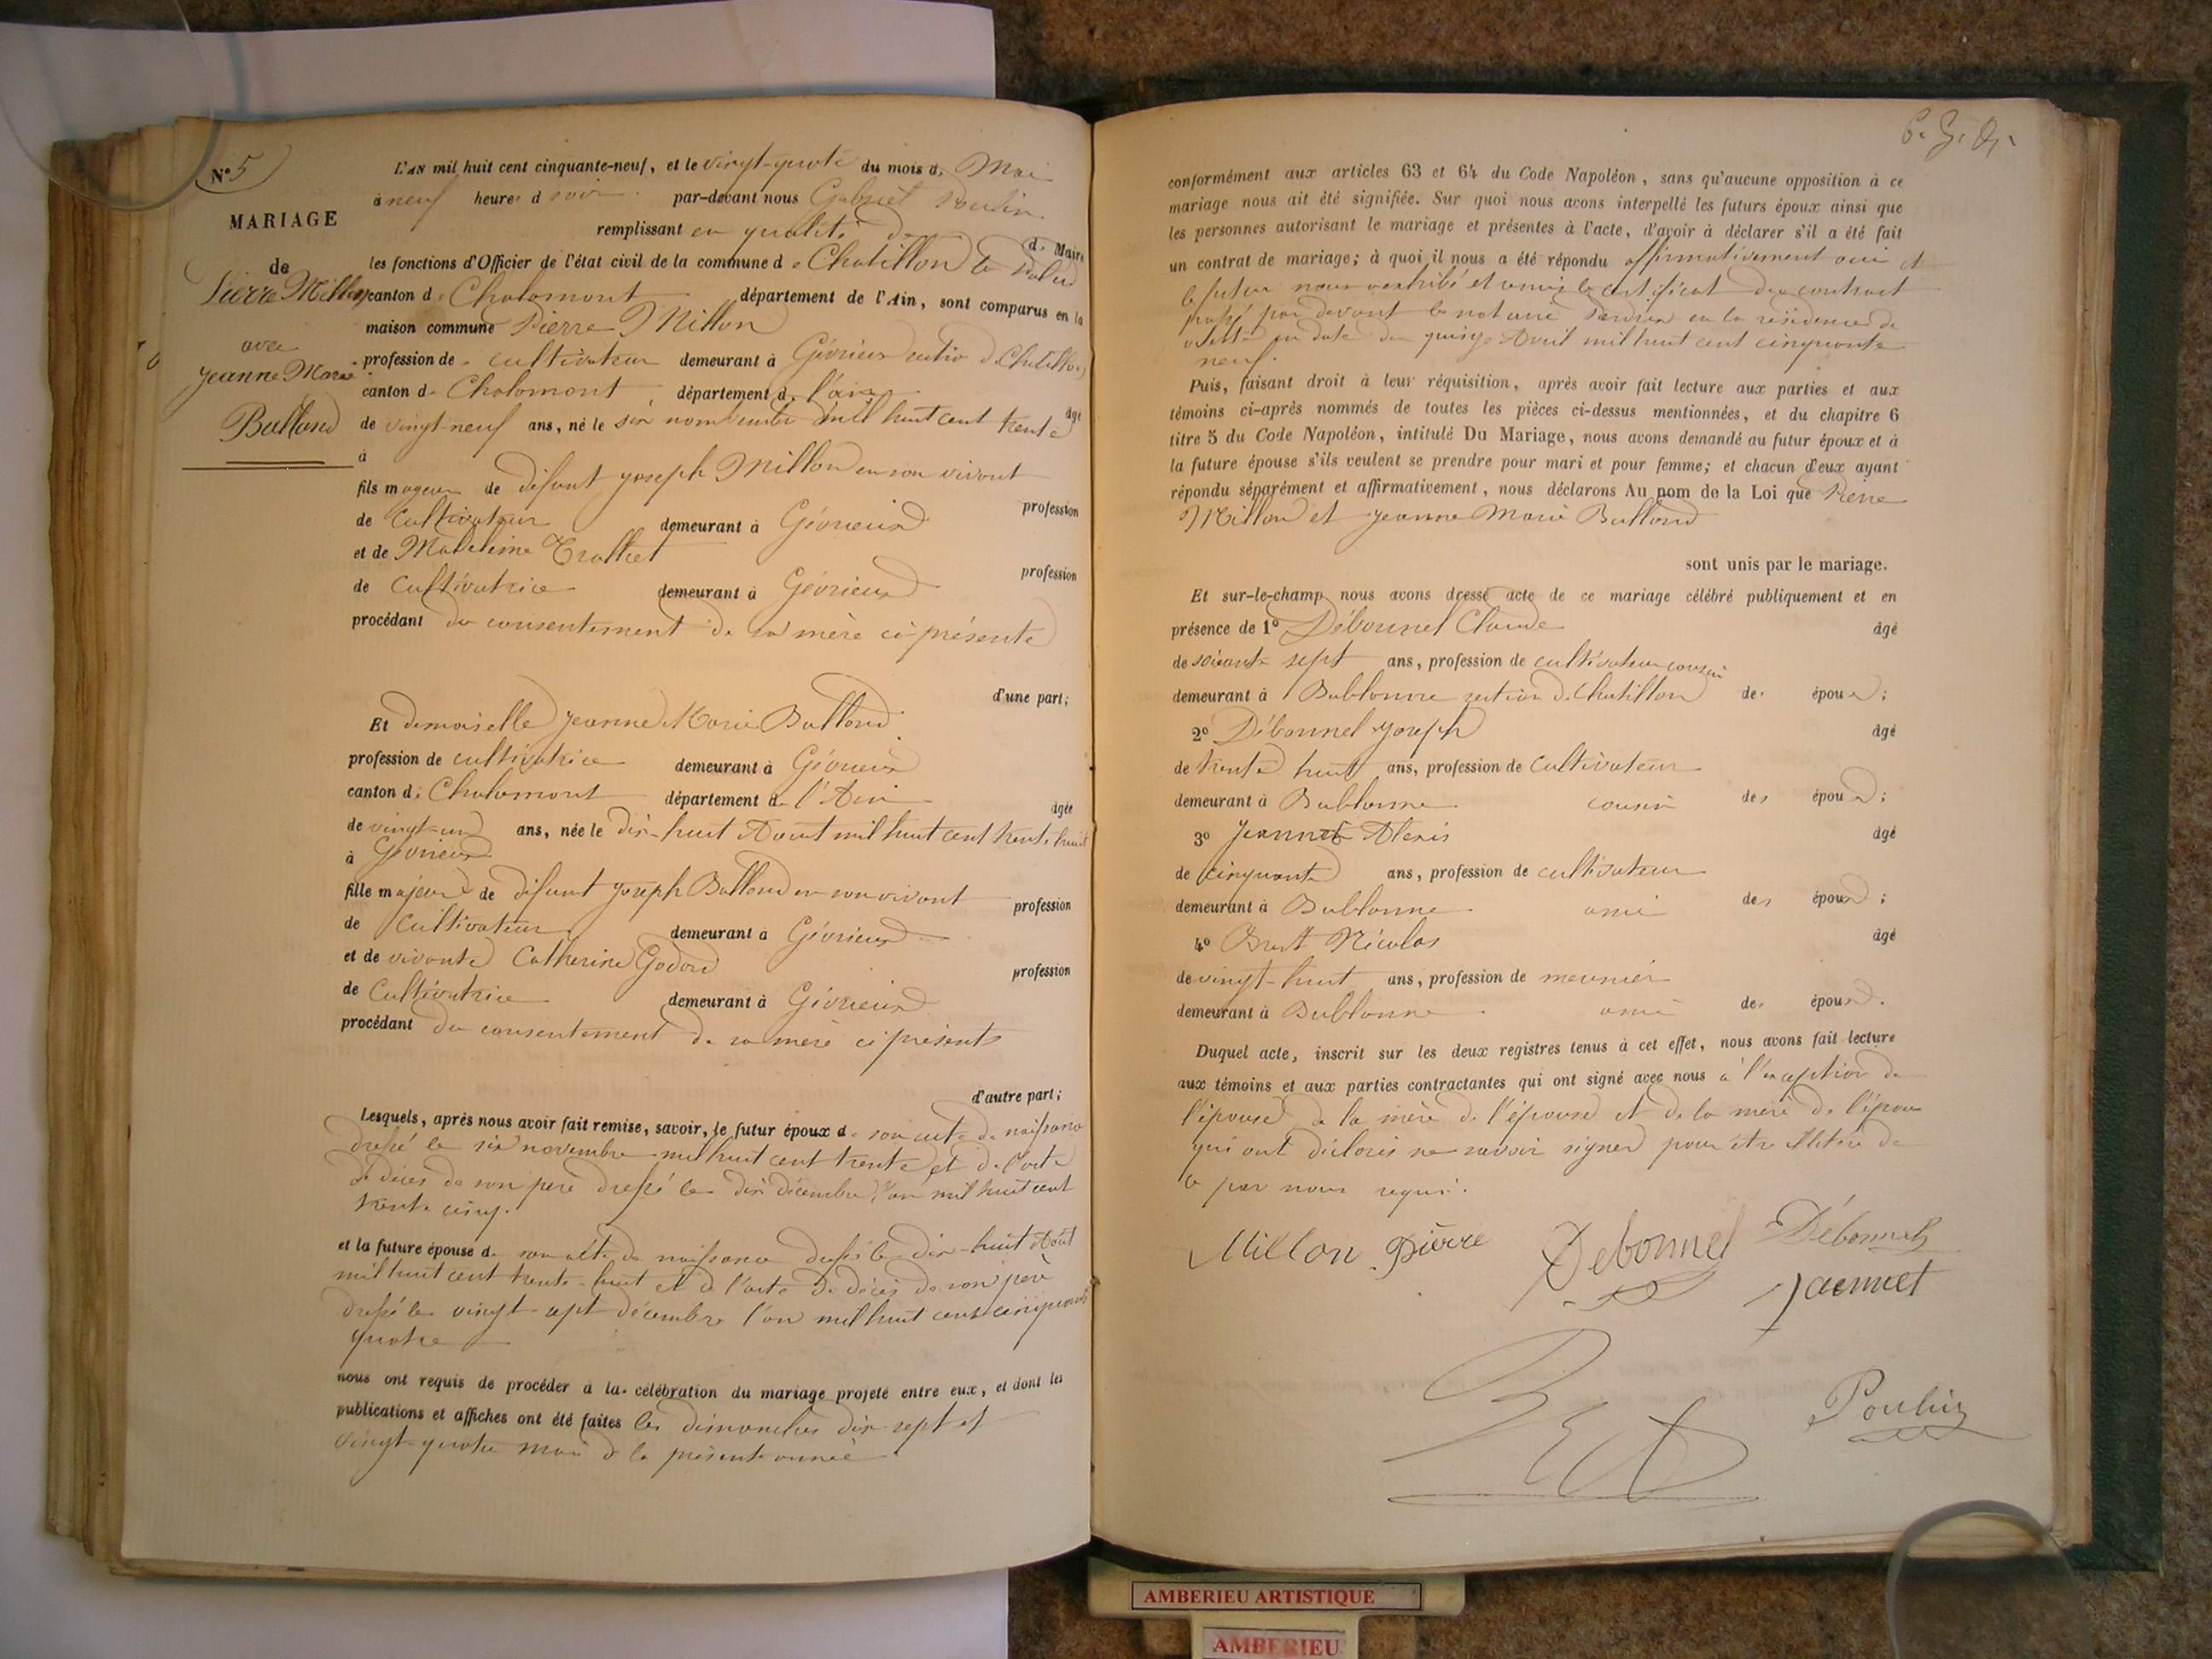 N° 5
MARIAGE
de
Pierre Millon
avec
Jeanne Marie
Balland
L'AN mil huit cent cinquante-neuf, et le vingt-quatre du mois de Mai
à neuf heures d soir par-devant nous Gabriel Poulin
remplissant en qualité de
de Maire
les fonctions d'Officier de l'état civil de la commune de Chatillon la Palud
canton de Chalamont département de l'Ain, sont comparus en la
maison commune Pierre Millon
profession de cultivateur demeurant à Gévrieux section de Chatillon
canton de Chalamont département de l'ain
âgé
de vingt-neuf ans, né le six novembre mil huit cent trente
à
fils majeur de défunt Joseph Millon en son vivant
profession
de cultivateur demeurant à Gévrieux
et de Madeleine
profession
de cultivatrice demeurant à Gévrieux
procédant du consentement de sa mère ci-présente
d'une part;
Et demoiselle Jeanne Marie Balland
profession de cultivatrice demeurant à Gévrieux
canton de Chalamont département de l'Ain
âgée
de vingt-un ans, née le dix-huit Aout mil huit cent trente huit
à Gévrieux
fille majeure de défunt Joseph Balland en son vivant
profession
de cultivateur demeurant à Gévrieux
et de vivante Catherine Godard
profession
de Cultivatrice demeurant à Gévrieux
procédant du consentement de sa mère ci présente
d'autre part;
Lesquels, après nous avoir fait remise, savoir, le futur époux de son acte de naissance
dressé le six novembre mil huit cent trente et de l'acte
de décès de son père dressé le dix décembre l'an mil huit cent
trente cinq.
et la future épouse de son acte de naissance dressé le dix-huit Août
mil huit cent trente-huit et de l'acte de décès de son père
dressé le vingt-sept décembre l'an mil huit cent cinquante
quatre
nous ont requis de procéder à la célébration du mariage projeté entre eux, et dont les
publications et affiches ont été faites les dimanches dix-sept et
vingt-quatre mai de la présente année
conformément aux articles 63 et 64 du Code Napoléon, sans qu'aucune opposition à ce
mariage nous ait été signifiée. Sur quoi nous avons interpellé les futurs époux ainsi que
les personnes autorisant le mariage et présentes à l'acte, d'avoir à déclarer s'il a été fait
un contrat de mariage; à quoi il nous a été répondu affirmativement oui et
le futur nous a exhibé et remis le certificat du contrat
passé par devant le notaire en la résidence de
en date du quinze Avril mil huit cent cinquante
neuf.
Puis, faisant droit à leur réquisition, après avoir fait lecture aux parties et aux
témoins ci-après nommés de toutes les pièces ci-dessus mentionnées, et du chapitre 6
titre 5 du Code Napoléon, intitulé Du Mariage, nous avons demandé au futur époux et à
la future épouse s'ils veulent se prendre pour mari et pour femme; et chacun d'eux ayant
répondu séparément et affirmativement, nous déclarons Au nom de la Loi que Pierre
Millon et Jeanne Marie Balland
sont unis par le mariage.
Et sur-le-champ nous avons dressé acte de ce mariage célébré publiquement et en
présence de 1° Débonnel Claude âgé
de soixante sept ans, profession de cultivateur cousin
demeurant à Bublanne section de Chatillon des époux;
2° Débonnel Joseph âgé
de trente huit ans, profession de cultivateur
demeurant à Bublanne cousin des époux;
3° Jeannet Alexis âgé
de cinquante ans, profession de cultivateur
demeurant à Bublanne ami des époux;
4° Nicolas âgé
de vingt-huit ans, profession de meunier
demeurant à Bublanne ami des époux.
Duquel acte, inscrit sur les deux registres tenus à cet effet, nous avons fait lecture
aux témoins et aux parties contractantes qui ont signé avec nous à l'exception de
l'épouse de la mère de l'épouse et de la mère de l'époux
qui ont déclaré ne savoir signer pour être illétré de
ce par nous requis.
Millon Pierre Debonnel Débonnel
Jaennet
Poulin
AMBERIEU ARTISTIQUE
AMBERIEU